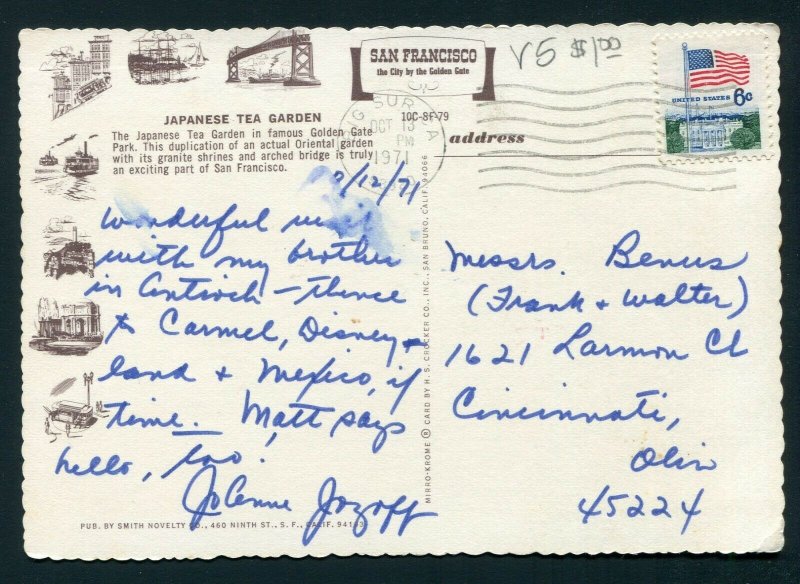 SAN FRANCISCO
the City by the Golden Gate
V5 $1.00
UNITED STATES 6c
JAPANESE TEA GARDEN
10C-SF-79
The Japanese Tea Garden in famous Golden Gate
Park. This duplication of an actual Oriental garden
with its granite shrines and arched bridge is truly
an exciting part of San Francisco.
BIG SUR CA
OCT 13
PM
1971
address
/12/71
Wonderful visit
with my brother
in Antioch - thence
to Carmel, Disney-
land & Mexico, if
time. Matt says
hello, too!
JoAnne Jozoff
Messrs. Benus
(Frank & Walter)
1621 Larmon Ct
Cincinnati,
Ohio
45224
MIRRO-KROME ® CARD BY H. S. CROCKER CO., INC., SAN BRUNO, CALIF. 94066
PUB. BY SMITH NOVELTY CO., 460 NINTH ST., S. F., CALIF. 94103